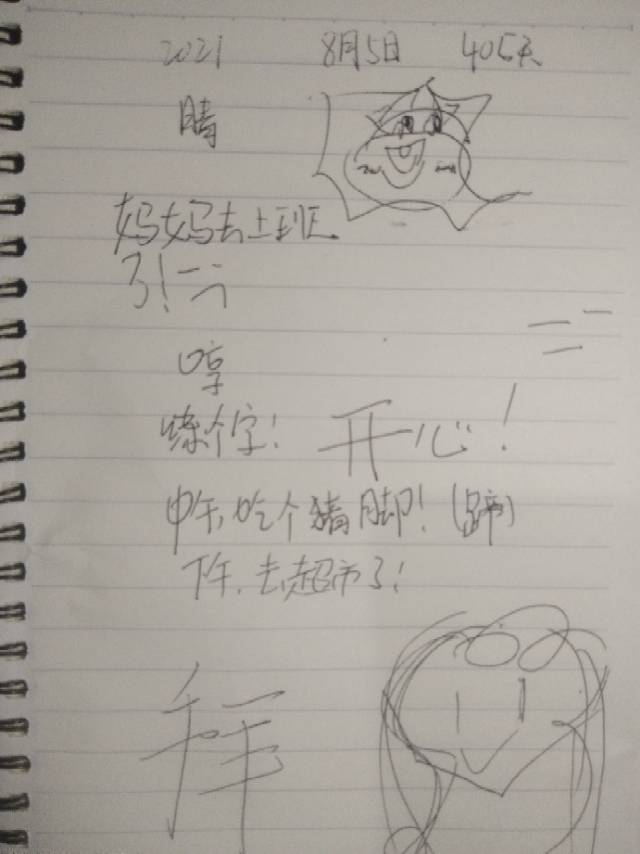 2021 8月5日 405天
晴
妈妈去上班
了!
哼
练个字! 开心!
中午,吃个猪脚!(蹄)
下午,去超市了!
拜